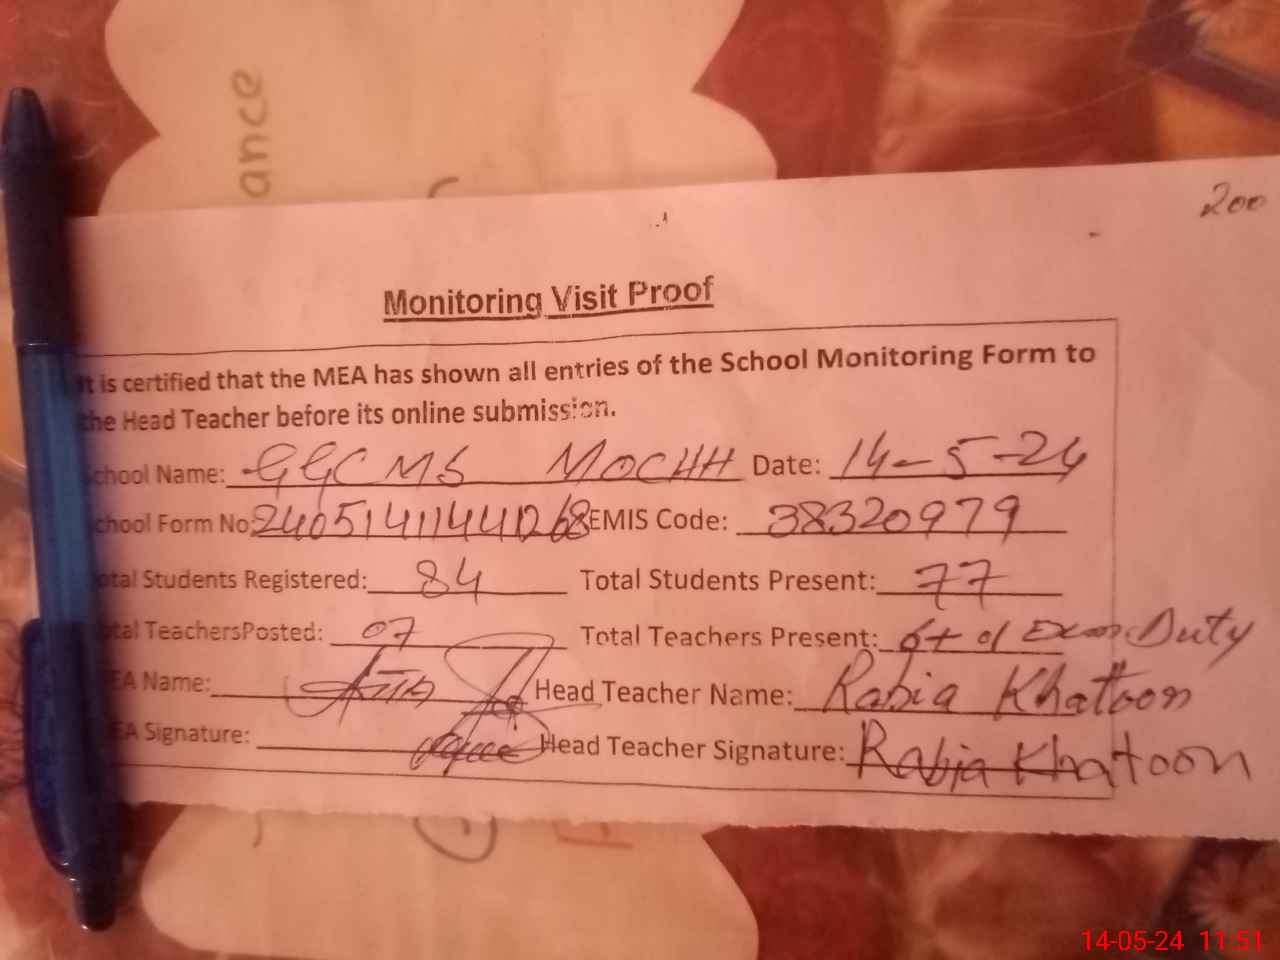 ance
200
Monitoring Visit Proof
It is certified that the MEA has shown all entries of the School Monitoring Form to
the Head Teacher before its online submission.
chool Name: GGCMS MOCHH Date: 14-5-24
chool Form No: 24051411441268 EMIS Code: 38320979
otal Students Registered: 84 Total Students Present: 77
otal TeachersPosted: 07 Total Teachers Present: 6+01 Exam Duty
EA Name: Head Teacher Name: Rabia Khatoon
EA Signature: Head Teacher Signature: Rabia Khatoon
14-05-24 11:51